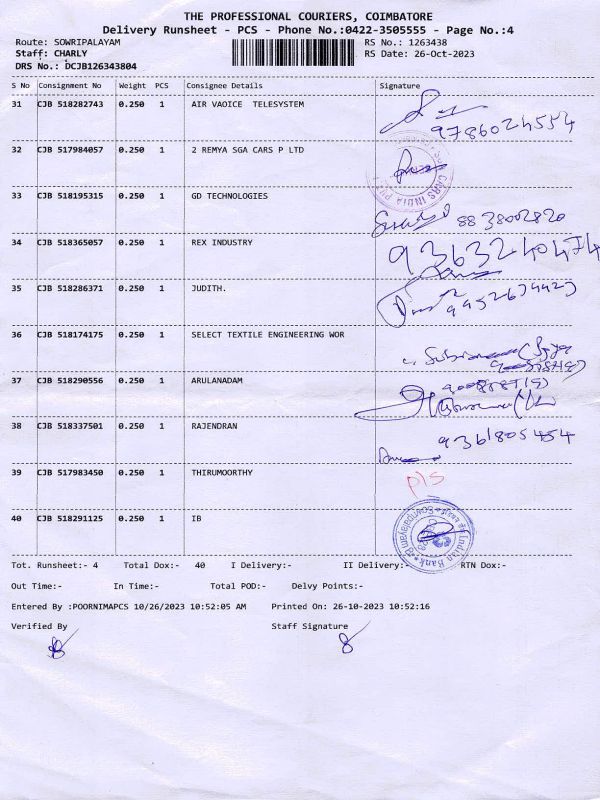 THE PROFESSIONAL COURIERS, COIMBATORE
Delivery Runsheet - PCS - Phone No.:0422-3505555 - Page No.:4
Route: SOWRIPALAYAM RS No.: 1263438
Staff: CHARLY RS Date: 26-Oct-2023
DRS No.: DCJB126343804
S No Consignment No Weight PCS Consignee Details Signature
31 CJB 518282743 0.250 1 AIR VAOICE TELESYSTEM
9786024554
32 CJB 517984057 0.250 1 2 REMYA SGA CARS P LTD
CARS INDIA
33 CJB 518195315 0.250 1 GD TECHNOLOGIES
8838002820
34 CJB 518365057 0.250 1 REX INDUSTRY
9363240474
35 CJB 518286371 0.250 1 JUDITH.
36 CJB 518174175 0.250 1 SELECT TEXTILE ENGINEERING WOR
37 CJB 518290556 0.250 1 ARULANADAM
38 CJB 518337501 0.250 1 RAJENDRAN
9361805454
39 CJB 517983450 0.250 1 THIRUMOORTHY
p/s
40 CJB 518291125 0.250 1 IB
Indian Bank Sowripalayam
Tot. Runsheet:- 4 Total Dox:- 40 I Delivery:- II Delivery:- RTN Dox:-
Out Time:- In Time:- Total POD:- Delvy Points:-
Entered By :POORNIMAPCS 10/26/2023 10:52:05 AM Printed On: 26-10-2023 10:52:16
Verified By Staff Signature